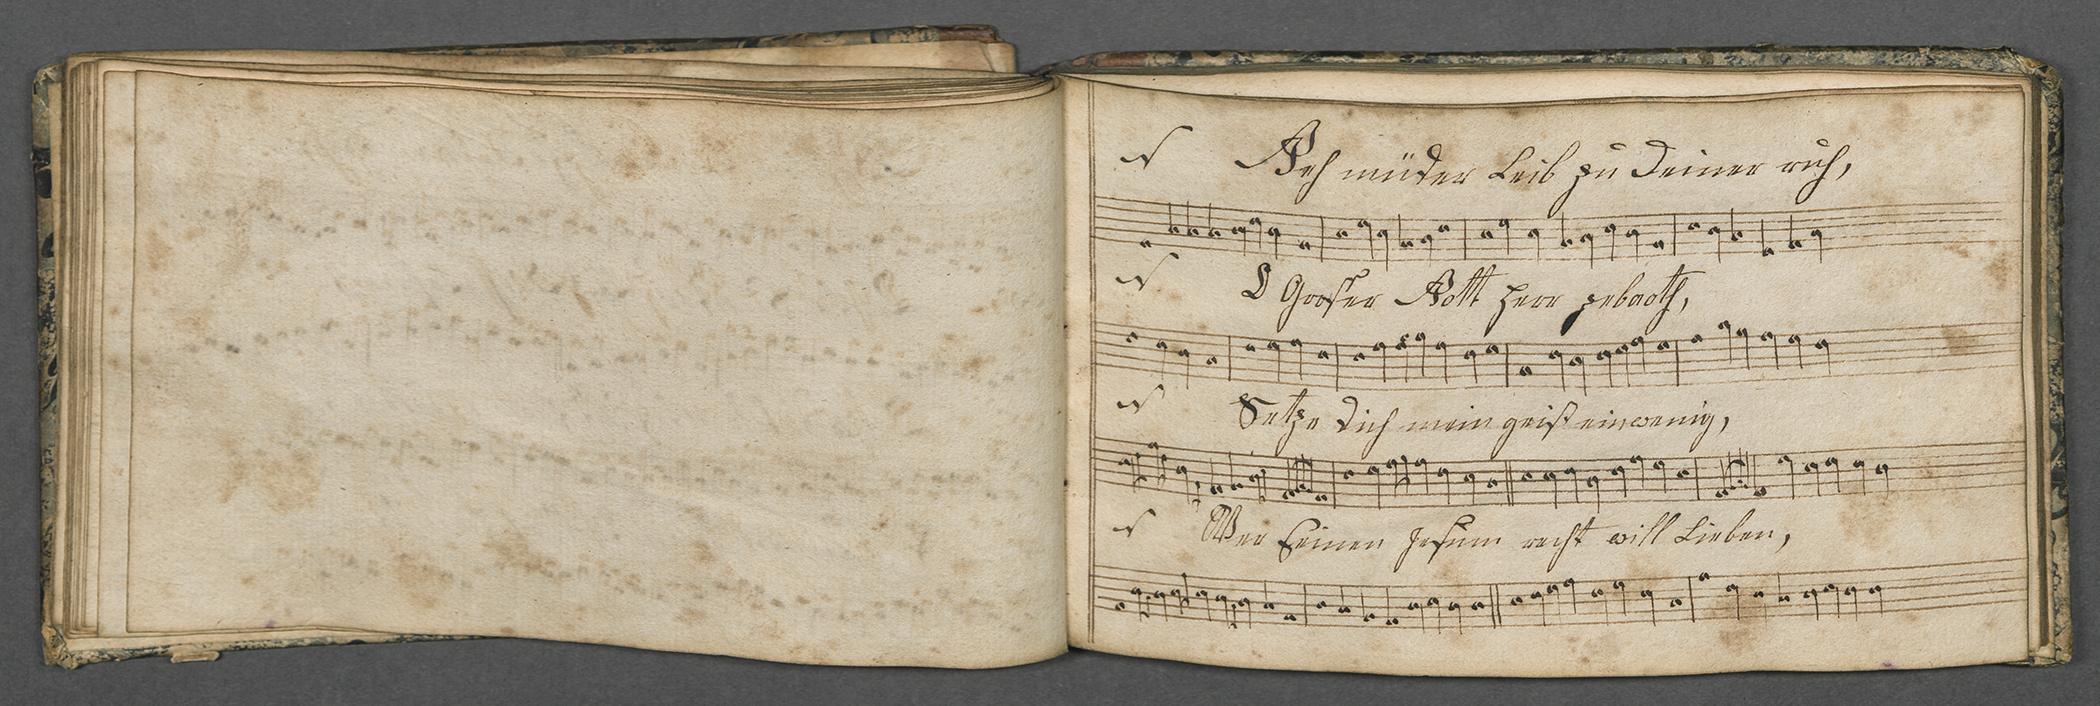 N Geh müder Leib zu deiner ruh,
N O Grosser Gott herr zebaoth,
N Setze dich mein geist ein wenig,
N Wer seinen Jesum recht will Lieben,